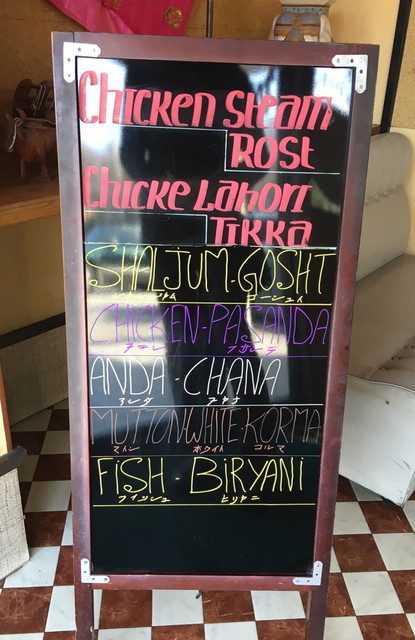 Chicken Steam
Rost
Chicke Lahori
Tikka
SHALJUM-GOSHT
CHICKEN-PASANDA
ANDA-CHANA
アンダ チャナ
MUTTON-WHITE-KORMA
マトン ホワイト コルマ
FiSH-BiRYANi